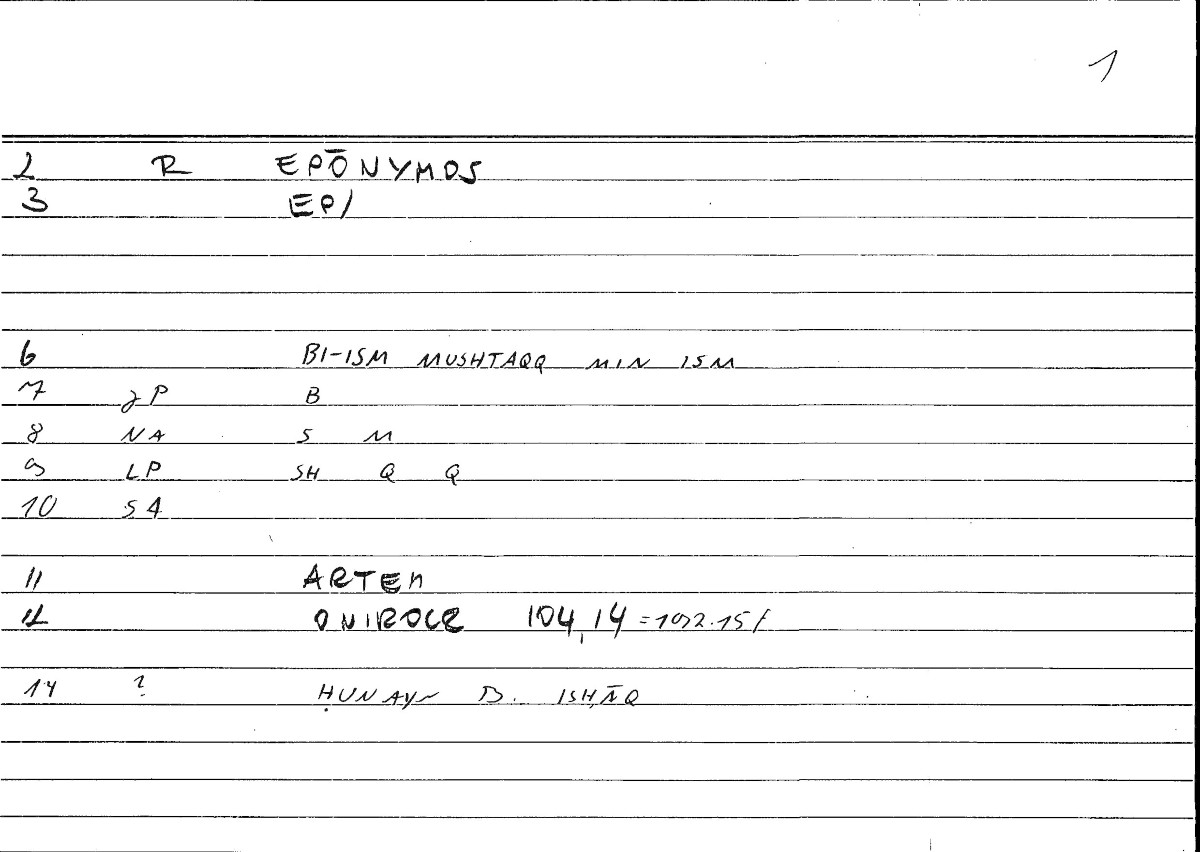 1
2 R EPŌNYMOS
3 EPI
6 BI-ISM MUSHTAQQ MIN ISM
7 JP B
8 NA S M
9 LP SH Q Q
10 S4
11 ARTEM
12 ONIROCR 104,14 =192.15f
14 ? ḤUNAYN B. ISḤĀQ